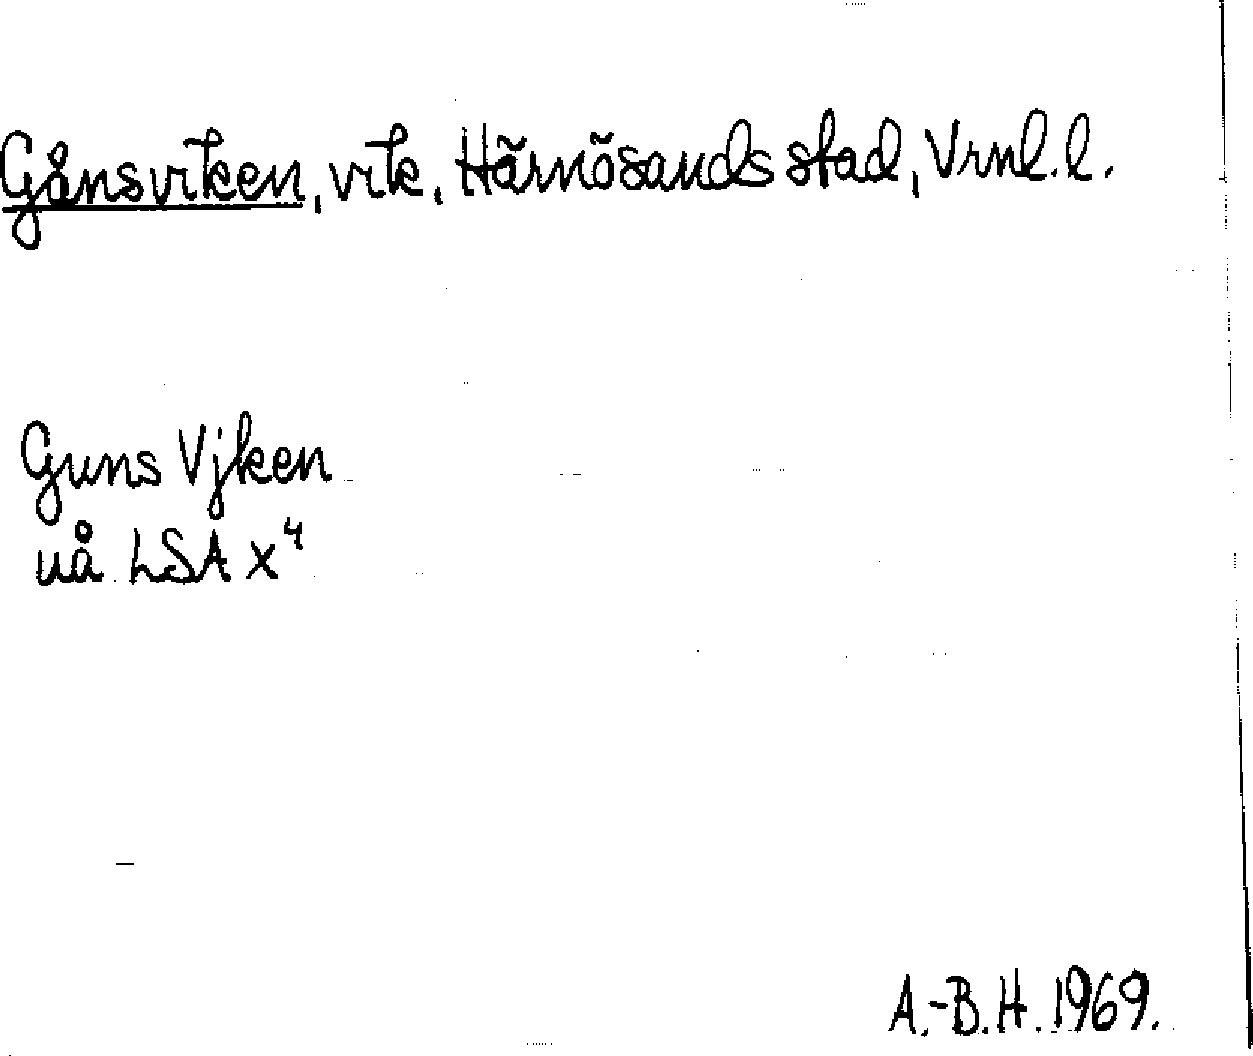 Gånsviken, vik, Härnösands stad, Vrnl. l.
Guns Vjken
uå LSA X⁴
A.-B.H. 1969.